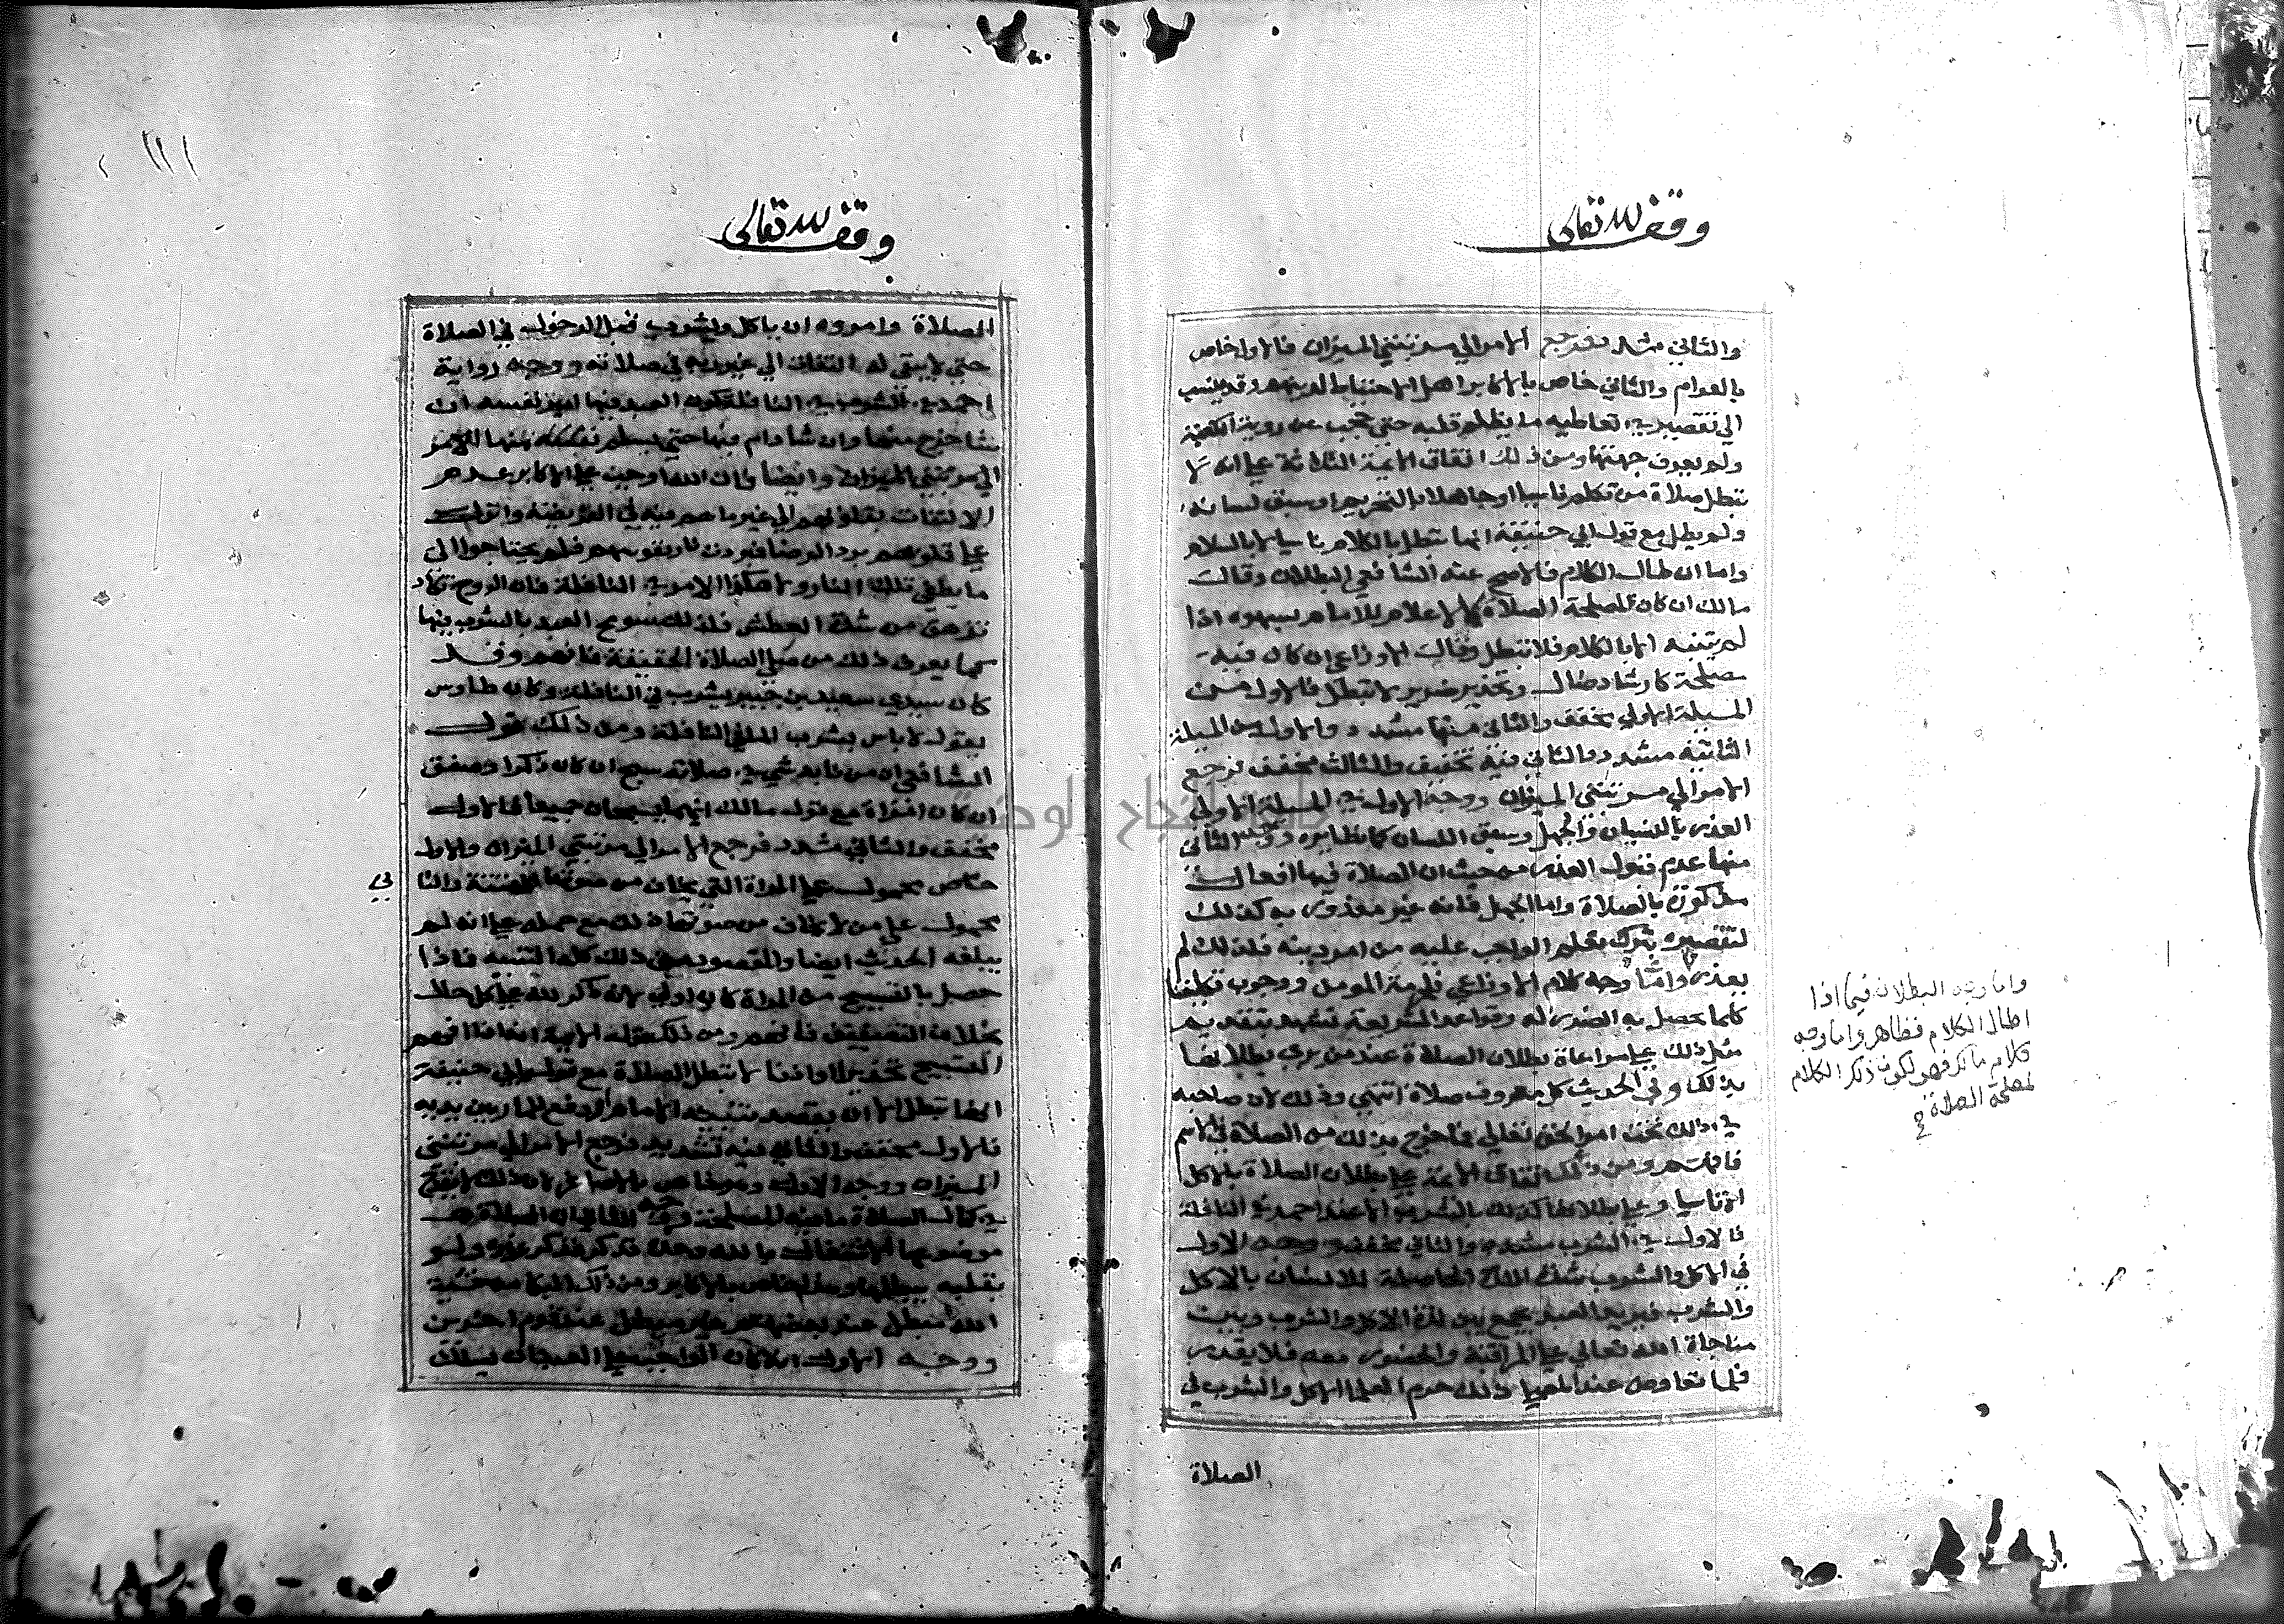 وقف لله تعالى
والثاني مشدد فرجع الامر الي مرتبتي الميزان فالاول خاص
بالعوام والثاني خاص بالاكابر اهل الاحتياط لدينهم وقد ينسب
الي تقصيره في تعاطيه ما يظلم قلبه حتى حجب عن روية الكعبة
ولم يعرف جهتها ومن ذلك اتفاق الايمة الثلاثة علي انه لا
تبطل صلاة من تكلم ناسيا او جاهلا بالتحريم او سبق لسانه
ولم يطل مع قول ابي حنيفة انها تبطل بالكلام ناسيا لا بالسلام
واما ان طال الكلام فالاصح عند الشافعي البطلان وقال
مالك ان كان لمصلحة الصلاة كالاعلام للامام بسهوه اذا
لم يتنبه الا بالكلام فلا تبطل وقال الاوزاعي ان كان فيه
مصلحة كارشاد ضال وتحذير ضرير لا تبطل فالاول من
المسيلة الاولي مخفف والثاني منها مشدد والاول من المسيلة
الثانية مشدد والثاني فيه تخفيف والثالث مخفف فرجع
الامر الي مرتبتي الميزان ووجه الاول في المسيلة الاولي
العذر بالنسيان والجهل وسبق اللسان كما نظايره ووجه الثاني
منها عدم قبول العذر من حيث ان الصلاة فيها افعال
مذكورة بالصلاة واما الجهل فانه غير معذور به كذلك
لتقصيره بترك تعليم الواجب عليه من امر دينه فلذلك لم
يعذر واما وجه كلام الاوزاعي فلحرمة المومن ووجوب
كلما يحصل به الضرر له وقواعد الشريعة تشهد بتقديم
مثل ذلك علي مراعاة بطلان الصلاة عند من يري بطلانها
بذلك وفي الحديث كل معروف صلاة انتهي وذلك لان صاحبه
في ذلك تحت امر الحق تعالي فما خرج بذلك من الصلاة في الاسم
فافهم ومن ذلك اتفاق الايمة علي بطلان الصلاة بالاكل
الا ناسيا وعلي بطلانها كذلك بالشرب الا عند احمد في النافلة
فالاول في الشرب مشدد والثاني مخفف ووجه الاول
في الاكل والشرب شدة اللذة الحاصلة للانسان بالاكل
والشرب فيريد العبد يجمع بين لذة الاكل والشرب وبين
مناجاة الله تعالي علي المراقبة والحضور معه فلا يقدر
فلما تعارض عند المصلي ذلك حرم العلما الاكل والشرب في
الصلاة
واما وجه البطلان فيما اذا
اطال الكلام فظاهر واما وجه
كلام مالك فهو لكون ذلك الكلام
لمصلحة الصلاة
وقف لله تعالى
١١١
الصلاة وامروه ان ياكل ويشرب قبل الدخول في الصلاة
حتي لا يبقي له التفات الي غير ربه في صلاته ووجه رواية
احمد في الشرب في النافلة كون العبد فيها امير نفسه ان
شا خرج منها وان شا دام فيها حتي يسلم منها فرجع الامر
الي مرتبتي الميزان وايضا فان الله اوجب علي الاكابر عدم
الالتفات بقلوبهم الي غير ما هم فيه في الفريضة وانزل
علي قلوبهم برد الرضا فبردت نار نفوسهم فلم يحتاجوا الي
ما يطفي تلك النار ولا هكذا الامر في النافلة فان الروح تكاد
تزهق من شدة العطش فلذلك سومح العبد بالشرب فيها
كما يعرف ذلك من صلي الصلاة الحقيقية فافهم وقد
كان سيدي سعيد بن جبير يشرب في النافلة وكان طاوس
يقول لا باس بشرب الما في النافلة ومن ذلك قول
الشافعي ان من نابه شي في صلاته سبح ان كان ذكرا وصفق
ان كان امراة مع قول مالك انهما يسبحان جميعا فالاول
مخفف والثاني مشدد فرجع الامر الي مرتبتي الميزان والاول
خاص محمول علي المراة التي يخاف من صوتها الفتنة والثا
ني
محمول علي من لا يخاف من صوتها ذلك مع حمله علي انه لم
يبلغه الحديث ايضا والمقصود في ذلك كله التنبه فاذا
حصل بالتسبيح من المراة كان اولي لانه ذكر لله علي كل حال
بخلاف التصفيق فافهم ومن ذلك قول الايمة انه اذا افهم
التسبيح تحذيرا واذنا لا تبطل الصلاة مع قول ابي حنيفة
انها تبطل الا ان يقصد تنبيه الامام او دفع المار بين يديه
فالاول مخفف والثاني فيه تشديد فرجع الامر الي مرتبتي
الميزان ووجه الاول وهو خاص بالاصاغر لان ذلك لا يقدح
في كمال الصلاة ما فيه المصلحة ووجه الثاني ان الصلاة
موضوعها الاشتغال بالله وحده فذكر غيره ولو
بقلبه يبطلها وهذا خاص بالاكابر ومن ذلك البكا من خشية
الله مبطل عند بعضهم غير مبطل عند قوم اخرين
ووجه الاول